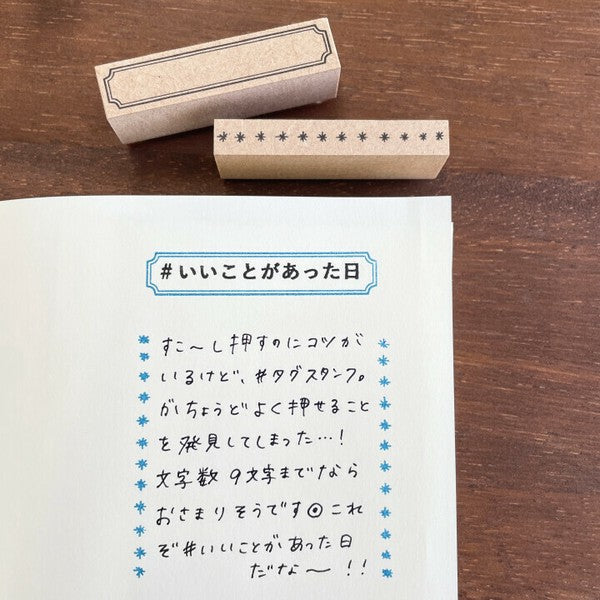 #いいことがあった日
すこ〜し押すのにコツが
いるけど、#タグスタンプ。
がちょうどよく押せること
を発見してしまった…!
文字数 9文字までなら
おさまりそうです◎これ
ぞ#いいことがあった日
だな〜 !!